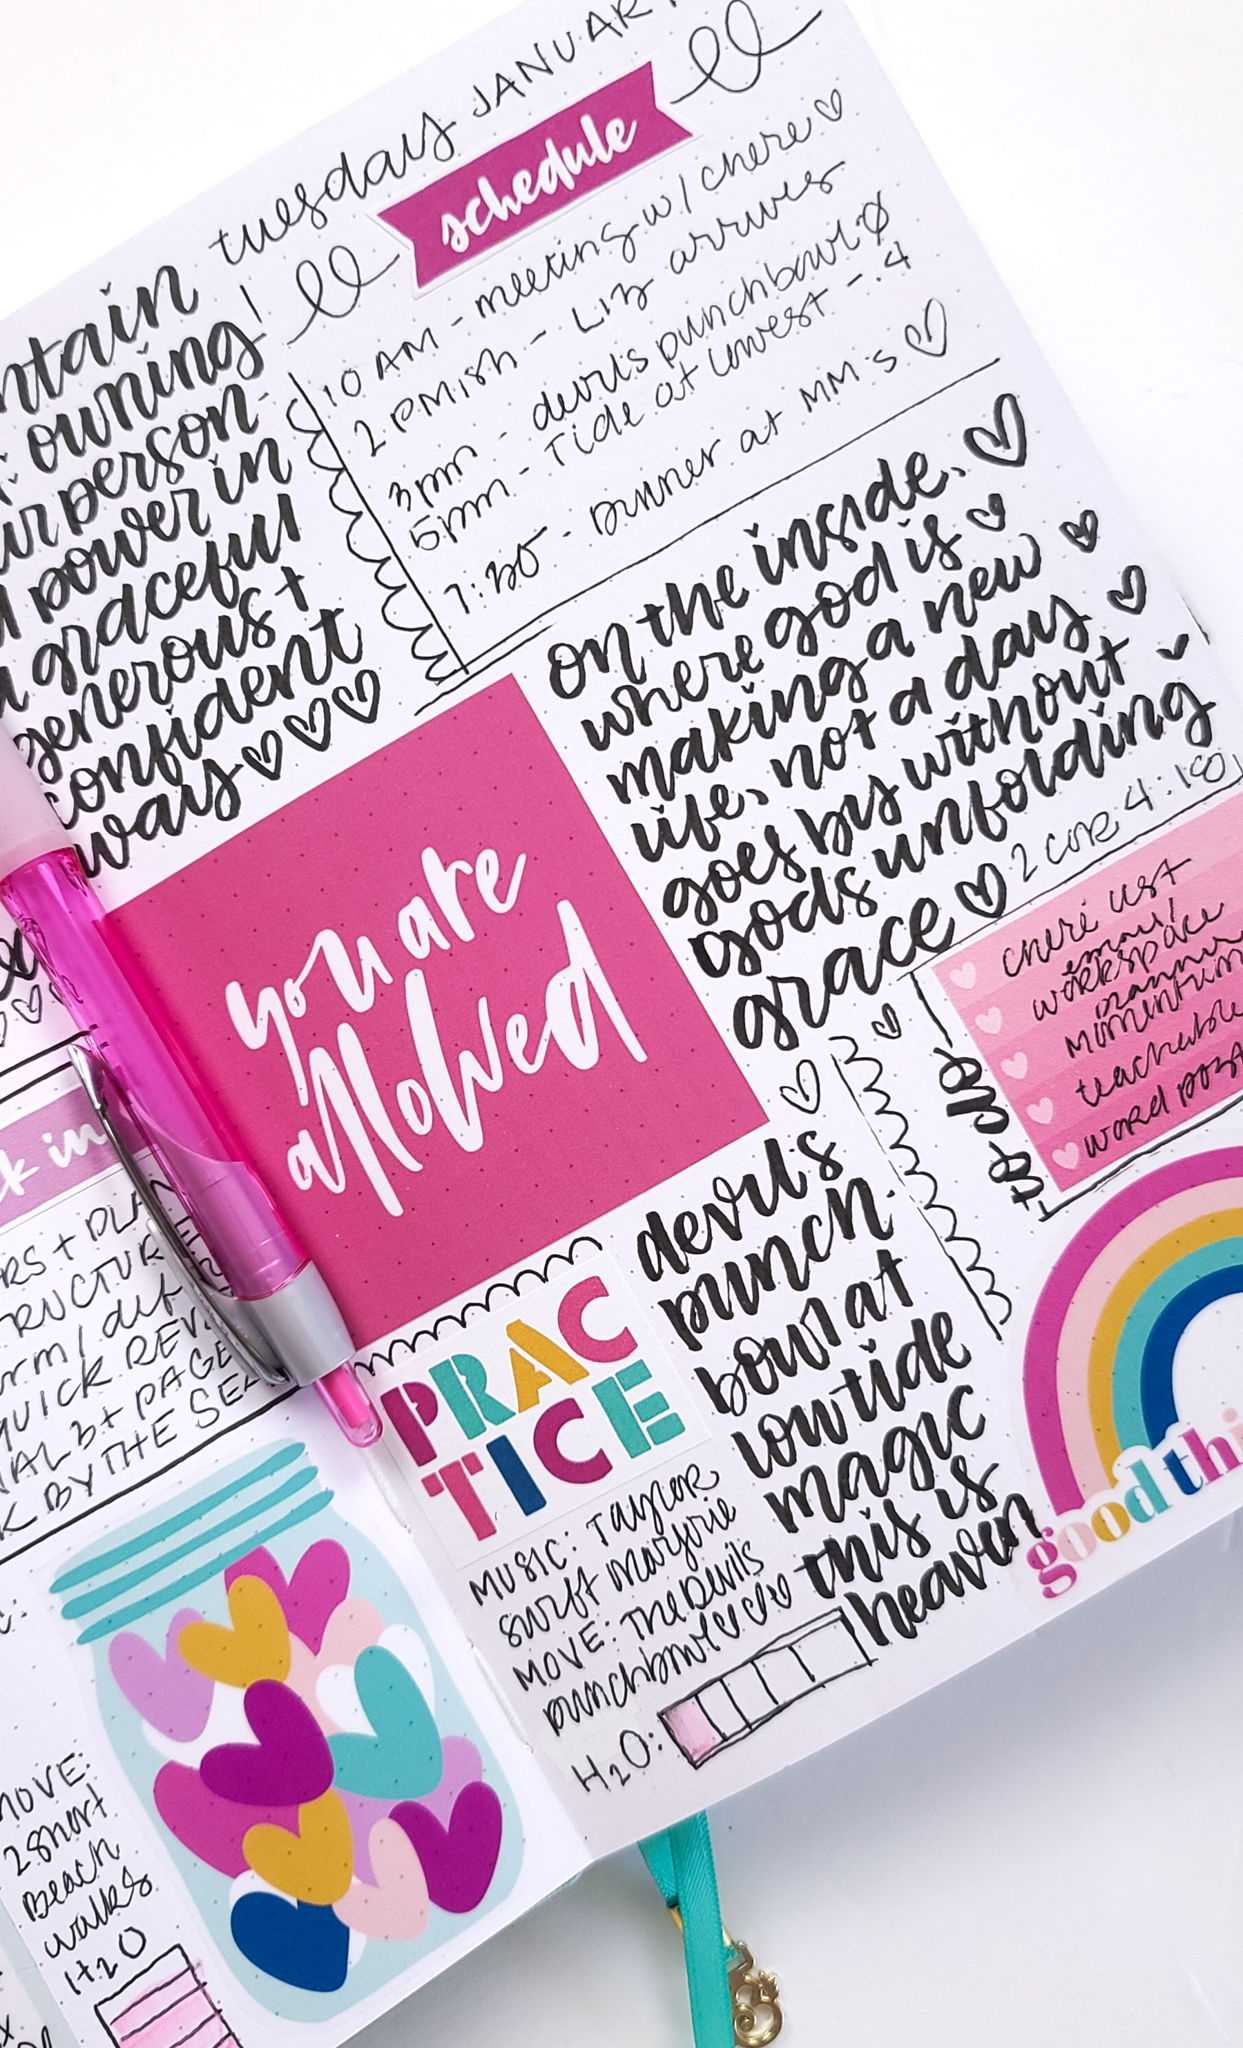 tuesday JANUARY
schedule
10 AM - meeting w/ chere
2 PMish - Liz arrives
3pm - devils punchbowl
5pm - Tide at lowest - .4
7:30 - Dinner at MM's
ntain
owning
person
power in
graceful
generous +
confident
ways
on the inside,
where god is
making a new
life, not a day
goes by without
gods unfolding
grace
2 COR 4:16
you are
allowed
to-do
chere list
email
workspace
planner
momentum
teachable
word post
devils
punch
bowl at
low tide
magic
this is
heaven
PRAC
TICE
MUSIC: Taylor
swift marjorie
MOVE: The Devils
punchbowl
H2O:
good thi
k in
RS + PLAN
TRUCTURE
QUICK REVI
NAL 3+ PAGE
K BY THE SEA
MOVE:
2 short
Beach
walks
H2O